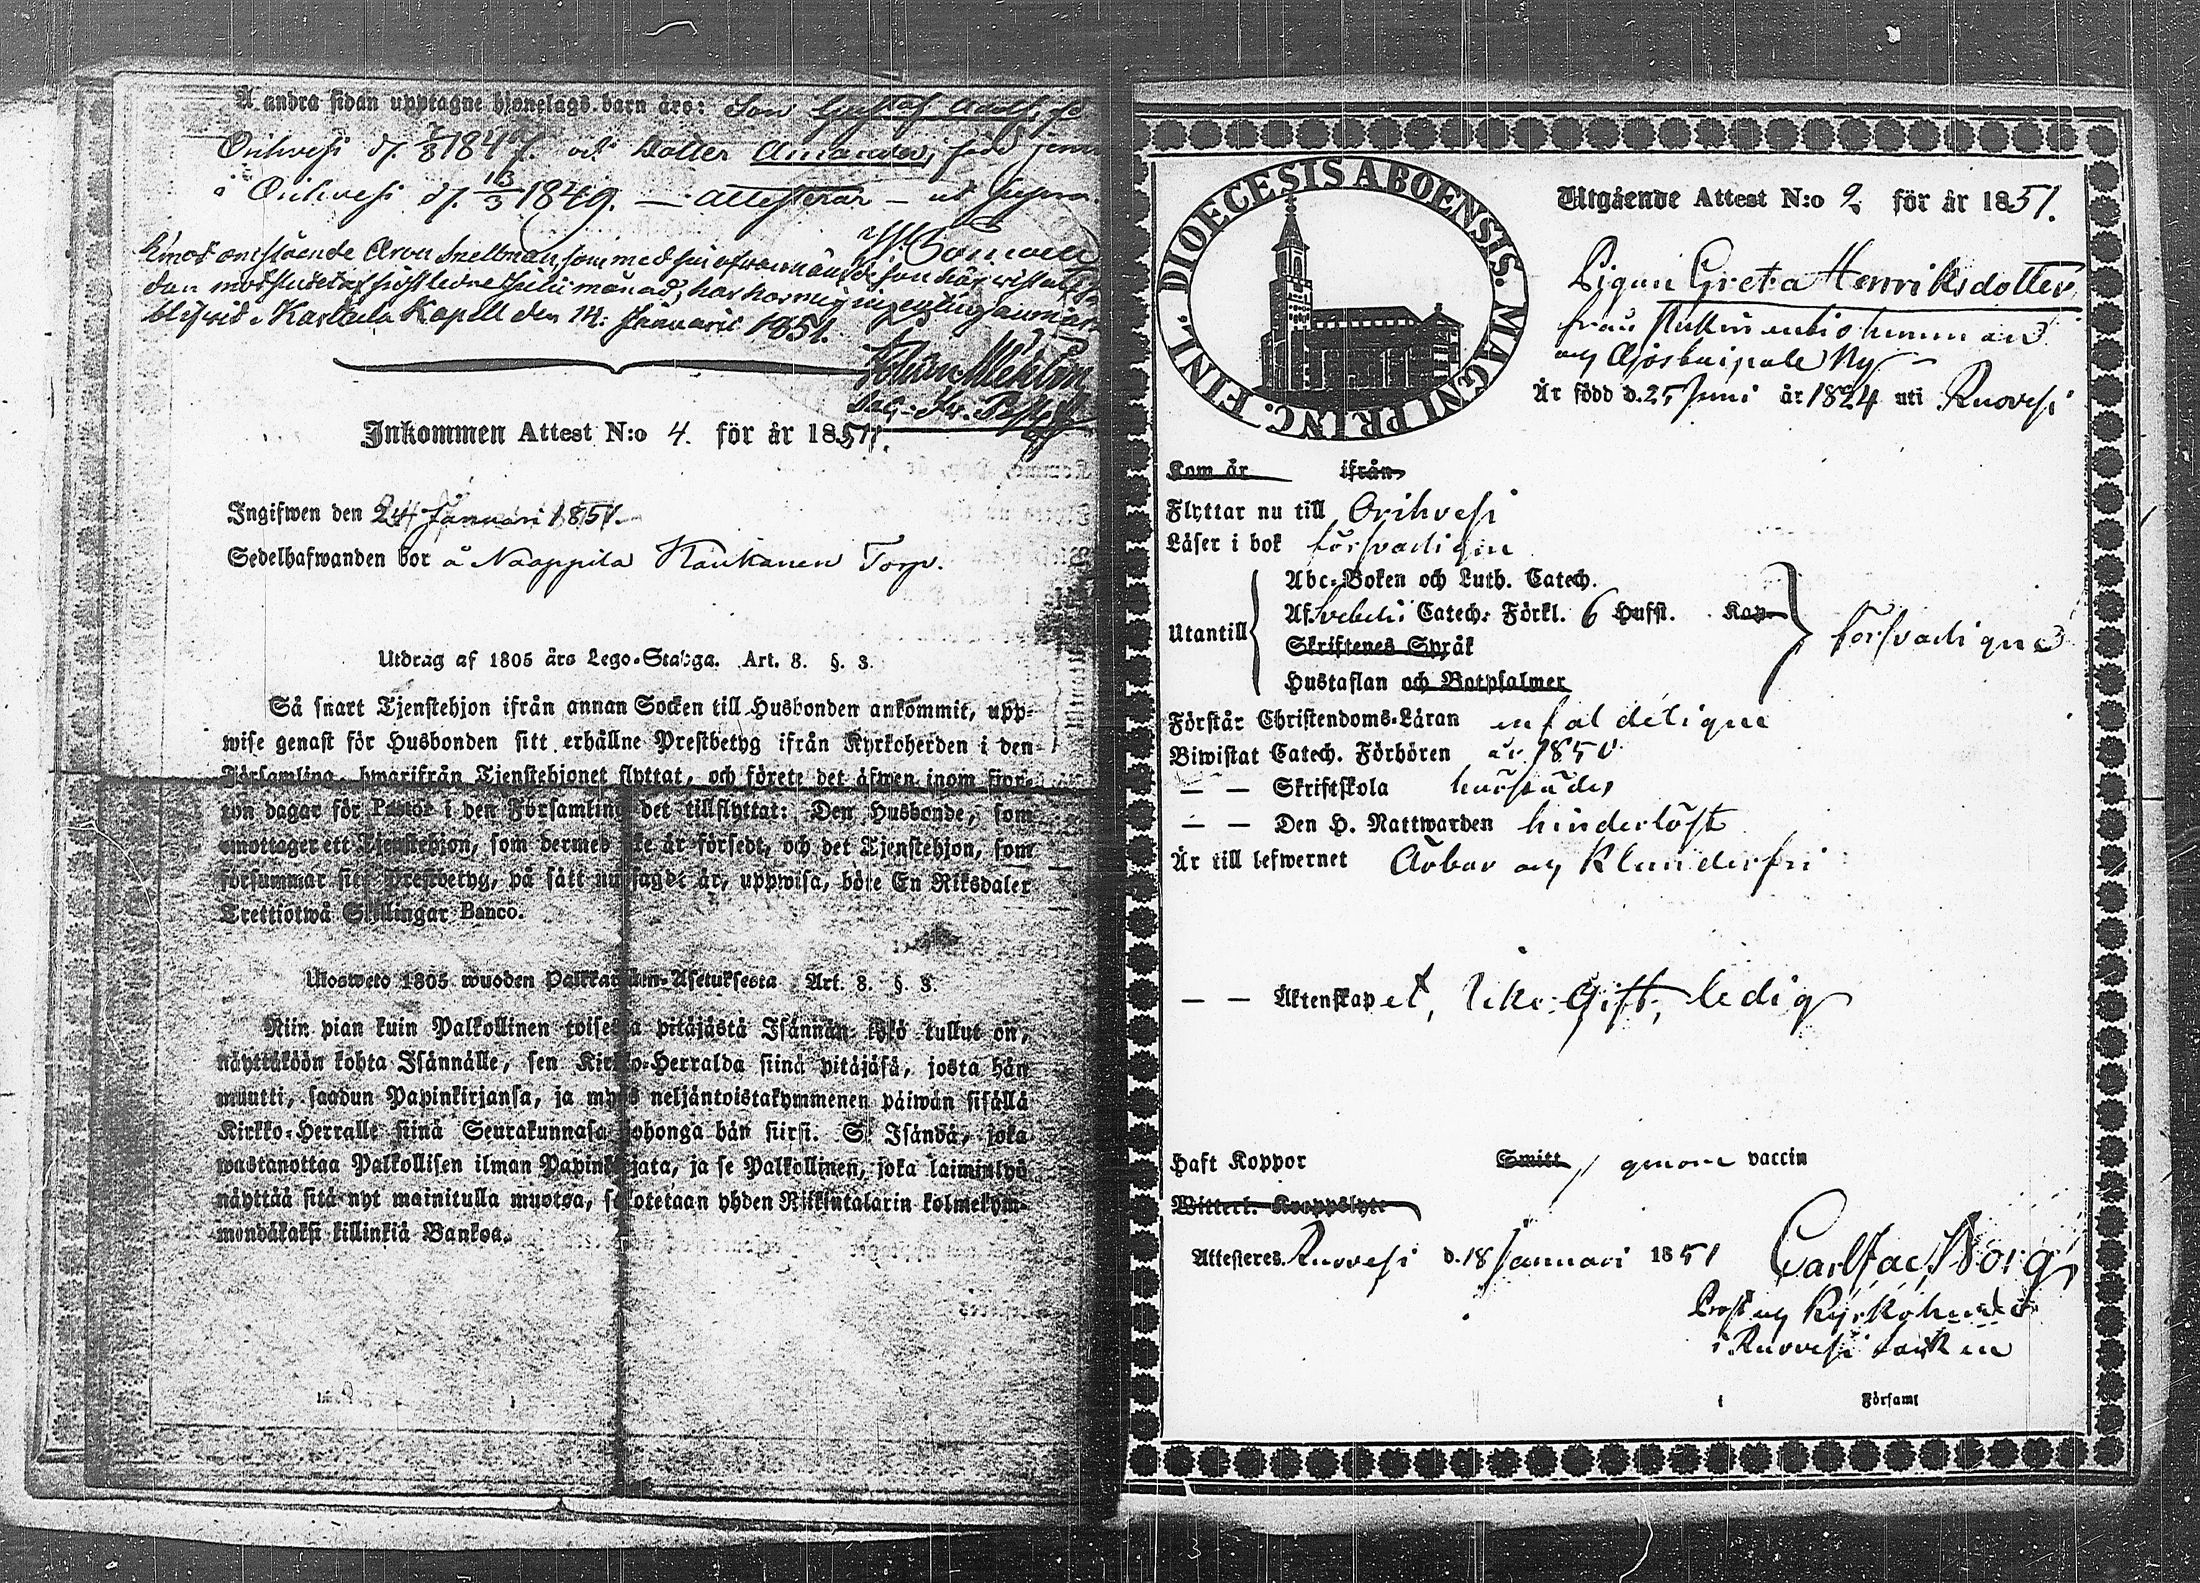 Å andra sidan upptagne hjonelags barn äro: Son Gustaf Adolf, fö
Orihvesi d. 7/8 1847. och Dotter Amanda, född jemv
i Orihvesi d. 13/3 1849. — Attesterar — ut supra.
Aron Snellman, som med sin
månad, har
blifvid i Karttula Kapell den 14. Januarii 1851.
Inkommen Attest N:o 4. för år 1851.
Ingifwen den 24 Januari 1851.
Sedelhafwanden bor å Naappila Kaukanen Torp.
Utdrag af 1805 års Lego-Stadga. Art. 8. §. 3.
Så snart Tjenstehjon ifrån annan Socken till Husbonden ankommit, upp-
wise genast för Husbonden sitt erhållne Prestbetyg ifrån Kyrkoherden i den
Församling, hwarifrån Tjenstehjonet flyttat, och förete det äfwen inom fjor-
ton dagar för Pastor i den Församling det tillflyttat: Den Husbonde, som
emottager ett Tjenstehjon, som dermed icke är försedt, och det Tjenstehjon, som
försummar sitt Prestbetyg, på sätt nu sagdt är, uppwisa, böte En Riksdaler
Trettiotwå Skillingar Banco.
Ulosweto 1805 wuoden Palkkawäen-Asetuksesta Art. 8. §. 3.
Niin pian kuin Palkollinen toisesta pitäjästä Isännän tykö tullut on,
näyttäköön kohta Isännälle, sen Kirkko-Herralda siinä pitäjäsä, josta hän
muutti, saadun Papinkirjansa, ja myös neljäntoistakymmenen päiwän sisällä
Kirkko-Herralle siinä Seurakunnasa johonga hän siirsi. Se Isändä, joka
wastanottaa Palkollisen ilman Papinkirjata, ja se Palkollinen, joka laiminlyö
näyttää sitä nyt mainitulla muotoa, sakotetaan yhden Riiksintalarin kolmekym-
mendäkaksi killinkiä Bankoa.
DIOECESIS ABOENSIS. MAGNI PRINC. FINL.
Utgående Attest N:o 9. för år 1851.
Pigan Greta Henriksdotter
från
och
Är född d. 25 Juni år 1824 uti Ruovesi
Kom år ifrån
Flyttar nu till Orihvesi
Läser i bok försvarligen
Utantill
Abc-Boken och Luth. Catech.
Af Svebelii Catech. Förkl. 6 Hufst. Kap
Skriftenes Språk
Hustaflan och Botpsalmer
försvarligen
Förstår Christendoms-Läran enfaldeligen
Biwistat Catech. Förhören år 1850
— — Skriftskola härstädes
— — Den H. Nattwarden hinderlöst
Är till lefwernet ärbar och klanderfri
— — Äktenskapet, icke gift, ledig
Haft Koppor Smitt genom vaccin
Witterl. Kroppslyte
Attesteres Ruovesi d. 18 Januari 1851 Carl Jac. Borg
Prost och Kyrkoherde
i Ruovesi Socken
i Församl